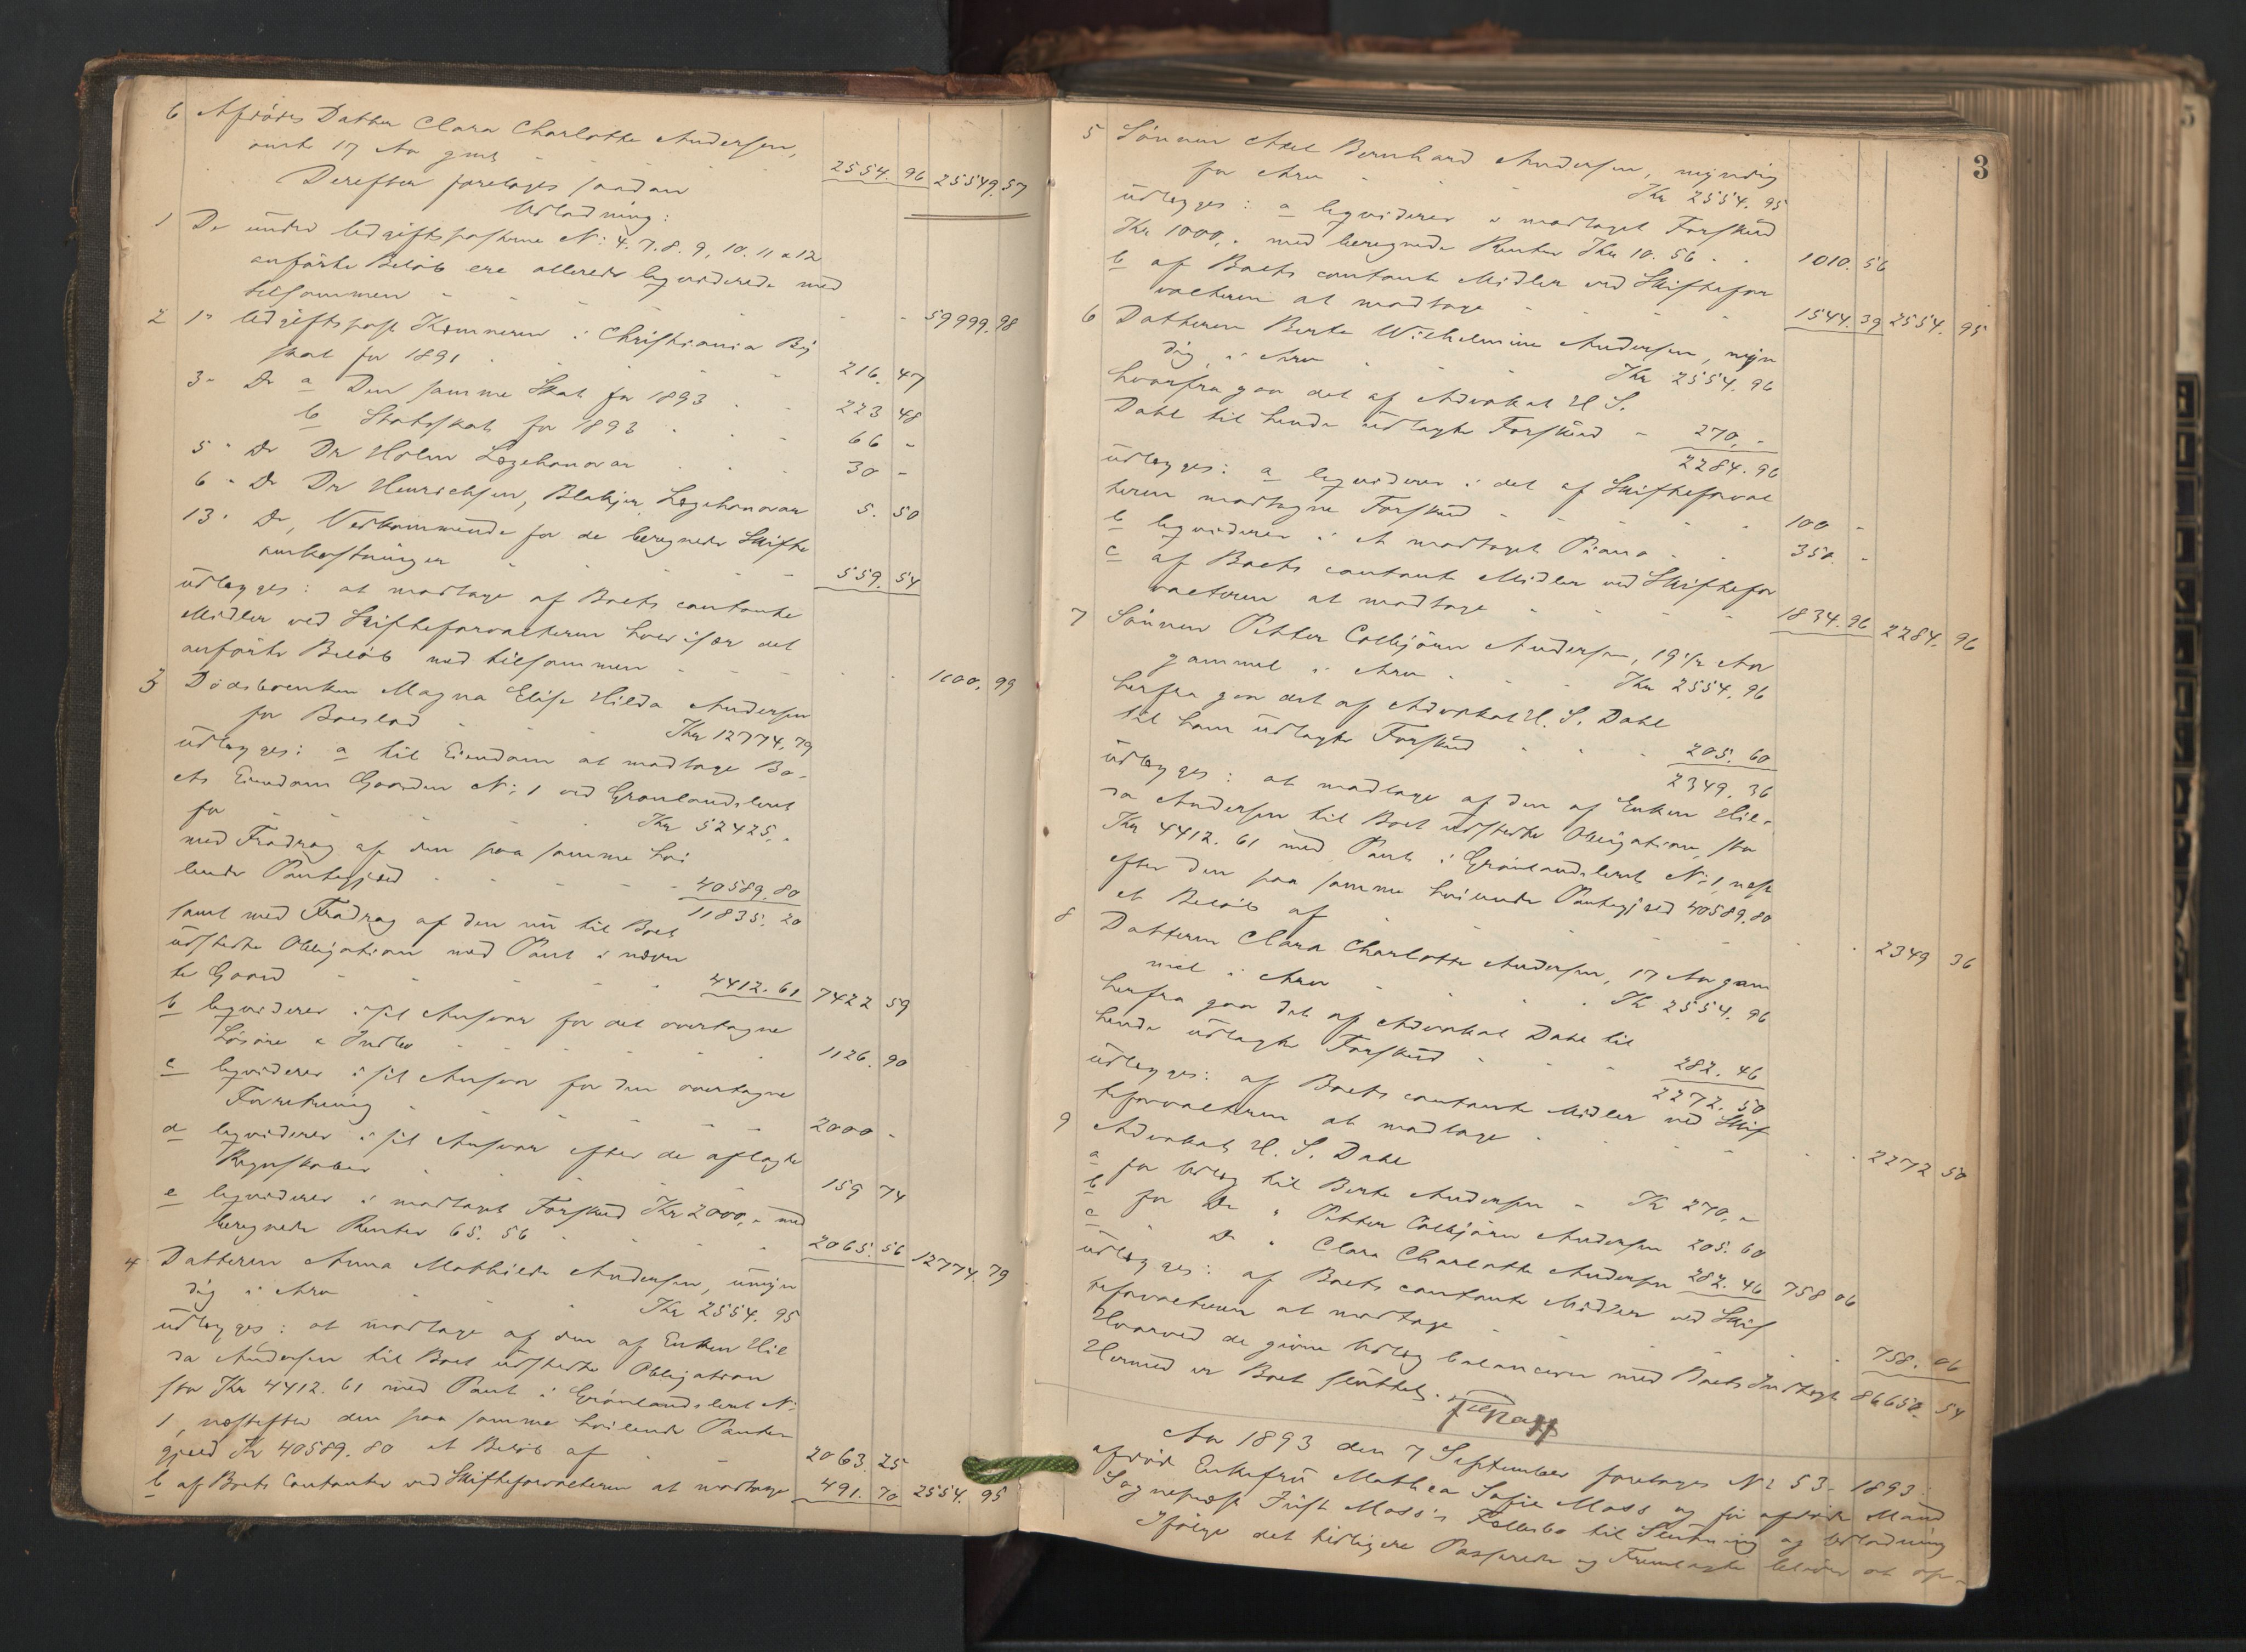 6 Afdødes Datter Clara Charlotte Andersen,
17 Aar gml 2554. 96 25549. 57
Derefter foretoges saadan
Udlodning:
1 De under Udgiftsposterne No: 4. 7. 8. 9, 10. 11 & 12
anførte Beløb ere allerede liqviderede med
tilsammen 59999. 98
2 1ste Udgiftspost Kæmneren i Christiania By
skat for 1891 216. 47
3- Do a Den samme Skat for 1893 223 48
b Statsskat for 1893 66 -
5 - Do Dr Holm Lægehonorar 30 -
6 - Do Dr Henrichsen, Lægehonorar 5. 50
13 - Do, Vedkommende for de beregnede Skifte
omkostninger 559. 54
udlægges: at modtage af Boets contante
Midler ved Skifteforvalteren hver især det
anførte Beløb med tilsammen 1100. 99
3 Dødsboenken Magna Elise Hilda Andersen
for Boeslod Kr 12774. 79
udlægges: a til Eiendom at modtage Bo-
ets Eiendom Gaarden No: 1 ved Grønlandsleret
for Kr 52425. -
med Fradrag af den paa samme hvi
lende Pantegjæld 40589. 80
11835. 20
samt med Fradrag af den nu til Boet
udstedte Obligation med Pant i nævn
te Gaard 4412. 61 7422 59
b liqviderer i sit Ansvar for det overtagne
Løsøre & Indbo 1126. 90
c liqviderer i sit Ansvar for den overtagne
Forretning 2000 -
d liqviderer i sit Ansvar efter de aflagte
Regnskaber 159 74
e liqviderer i modtaget Forskud Kr 2000, - med
beregnede Renter 65. 56 2065. 56 12774. 79
4 Datteren Anna Mathilde Andersen, umyn
dig i Arv Kr 2554. 95
udlægges: at modtage af den af Enken Hil
da Andersen til Boet udstedte Obligation
stor Kr 4412. 61 med Pant i Grønlandsleret No:
1, næstefter den paa samme hvilende Pante-
gjæld Kr 40589. 80 et Beløb af 2063. 25
b af Boets Contanter ved Skifteforvalteren at modtage 491. 70 2554. 95
3
5 Sønnen Axel Bernhard Andersen, myndig
for Arv Kr 2554. 95
udlægges: a liqviderer i modtaget Forskud
Kr 1000, - med beregnede Renter Kr 10. 56 1010. 56
b af Boets contante Midler ved Skiftefor
valteren at modtage 1544. 39 2554. 95
6 Datteren Berte Wilhelmine Andersen, myn
dig, i Arv Kr 2554. 96
hvorfra gaar det af Advokat H S.
Dahl til hende udlagte Forskud - 270. -
2284. 96
udlægges: a liqviderer i det af Skifteforval
teren modtagne Forskud 100 -
b liqviderer i et modtaget Piano 350. -
c af Boets contante Midler ved Skiftefor
valteren at modtage 1834. 96 2284. 96
7 Sønnen Petter Colbjørn Andersen, 19 1/2 Aar
gammel i Arv Kr 2554. 96
herfra gaar det af Advokat H. S. Dahl
til ham udlagte Forskud 205. 60
2349. 36
udlægges: at modtage af den af Enken Hil-
da Andersen til Boet udstedte Obligation, stor
Kr 4412. 61 med Pant i Grønlandsleret No: 1, næst
efter den paa samme hvilende Pantegjæld 40589. 80
et Beløb af 2349 36
8 Datteren Clara Charlotte Andersen, 17 Aar gam
mel i Arv Kr 2554. 96
herfra gaar det af Advokat Dahl til
hende udlagte Forskud 282. 46
2272. 50
udlægges: af Boets contante Midler ved Skif
teforvalteren at modtage 2272 50
9 Advokat H. S. Dahl
a for Udlæg til Berte Andersen - Kr 270, -
b for Do " Petter Colbjørn Andersen 205. 60
c " Do " Clara Charlotte Andersen 282. 46 758 06
udlægges: af Boets contante Midler ved Skif
teforvalteren at modtage 758. 06
Hvorved de givne Udlæg balancerer med Boets Indtægt 86650. 54
Hermed er Boet sluttet.
Aar 1893 den 7 September foretoges No 53 - 1893
afdøde Enkefru Mathea Sofie Moss og før afdøde Mand
Sogneprest Just Moss's Fællesbo til Slutning og Udlodning
Ifølge det tidligere Passerede og Fremlagte bliver at op-